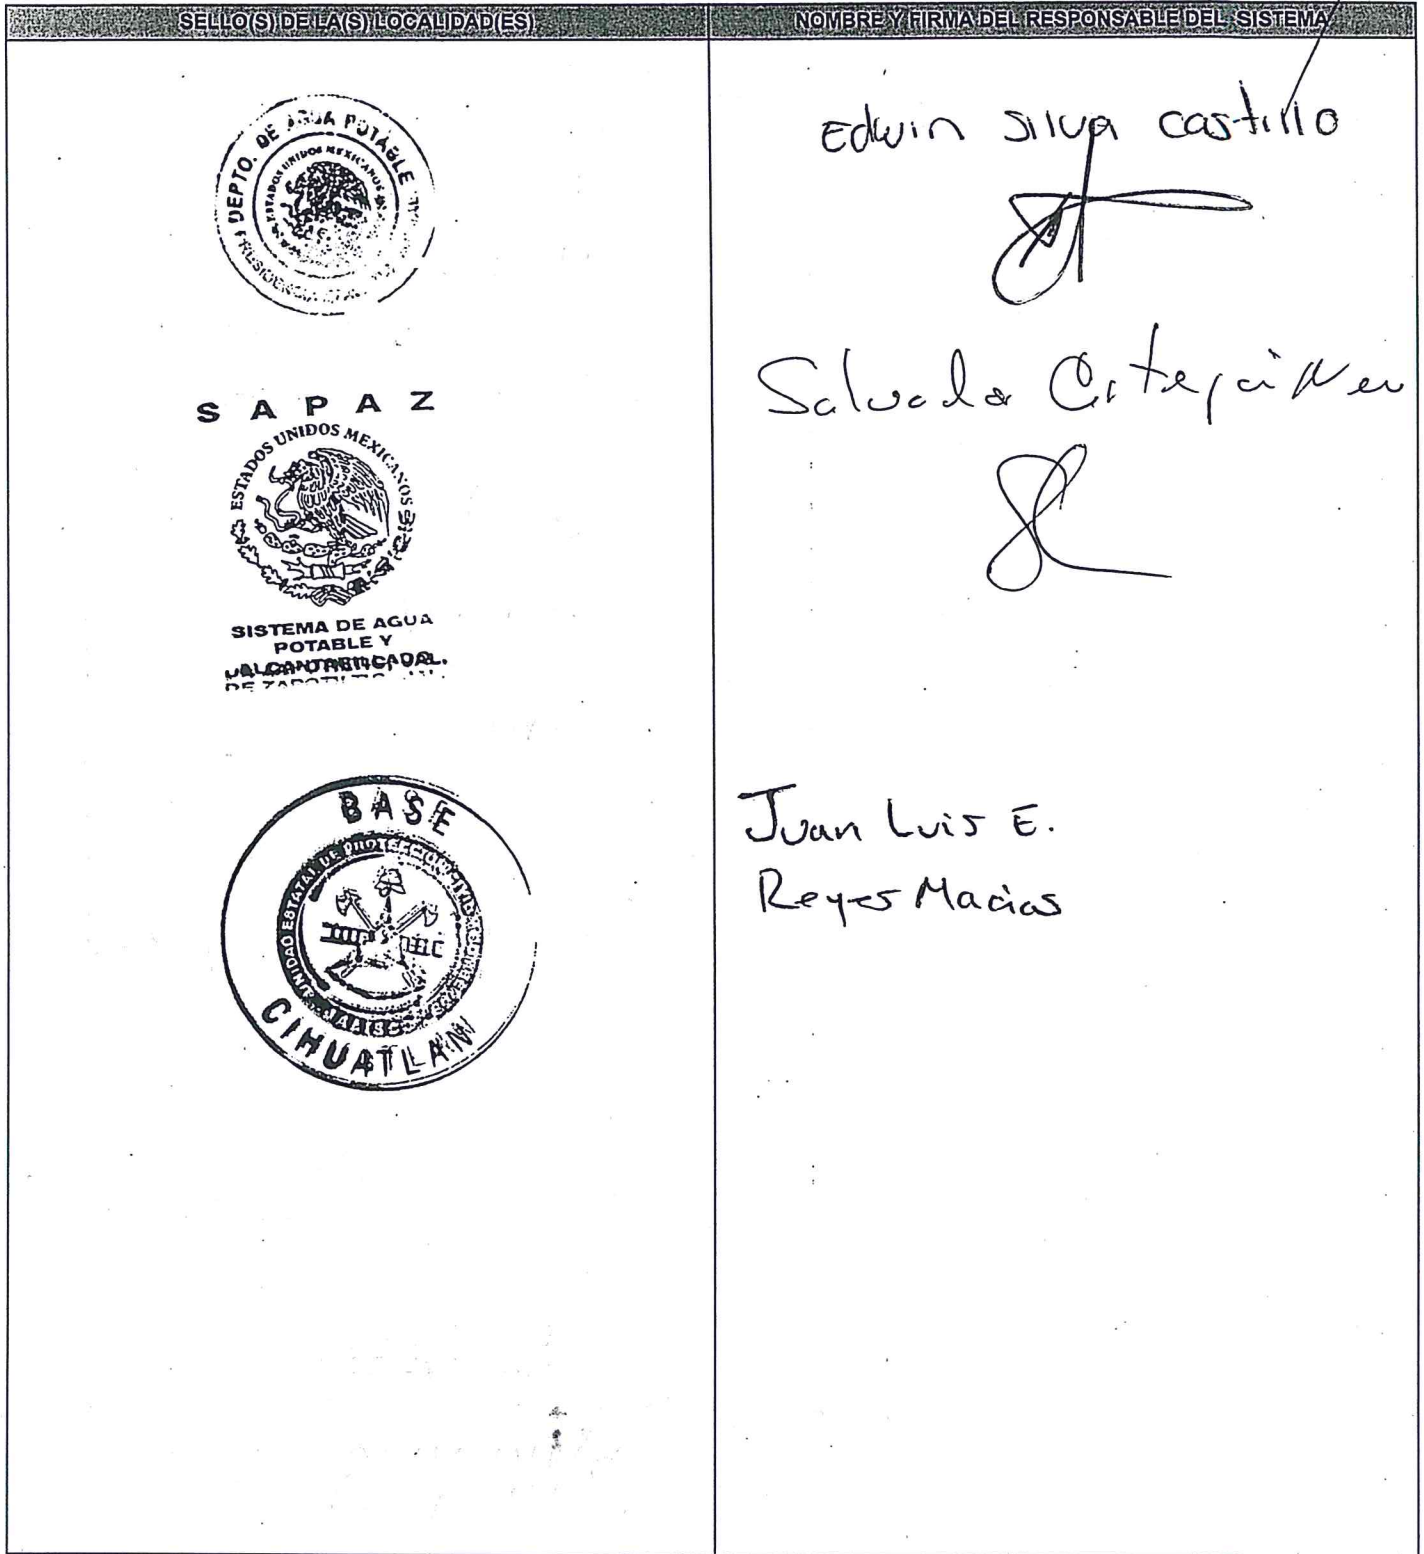 SELLO(S) DE LA(S) LOCALIDAD(ES)
NOMBRE Y FIRMA DEL RESPONSABLE DEL SISTEMA
DEPTO. DE AGUA POTABLE
ESTADOS UNIDOS MEXICANOS
Edwin Silva Castillo
S A P A Z
ESTADOS UNIDOS MEXICANOS
SISTEMA DE AGUA
POTABLE Y
Salvador
BASE
UNIDAD ESTATAL DE PROTECCION CIVIL
JALISCO
CIHUATLAN
Juan Luis E.
Reyes Macias